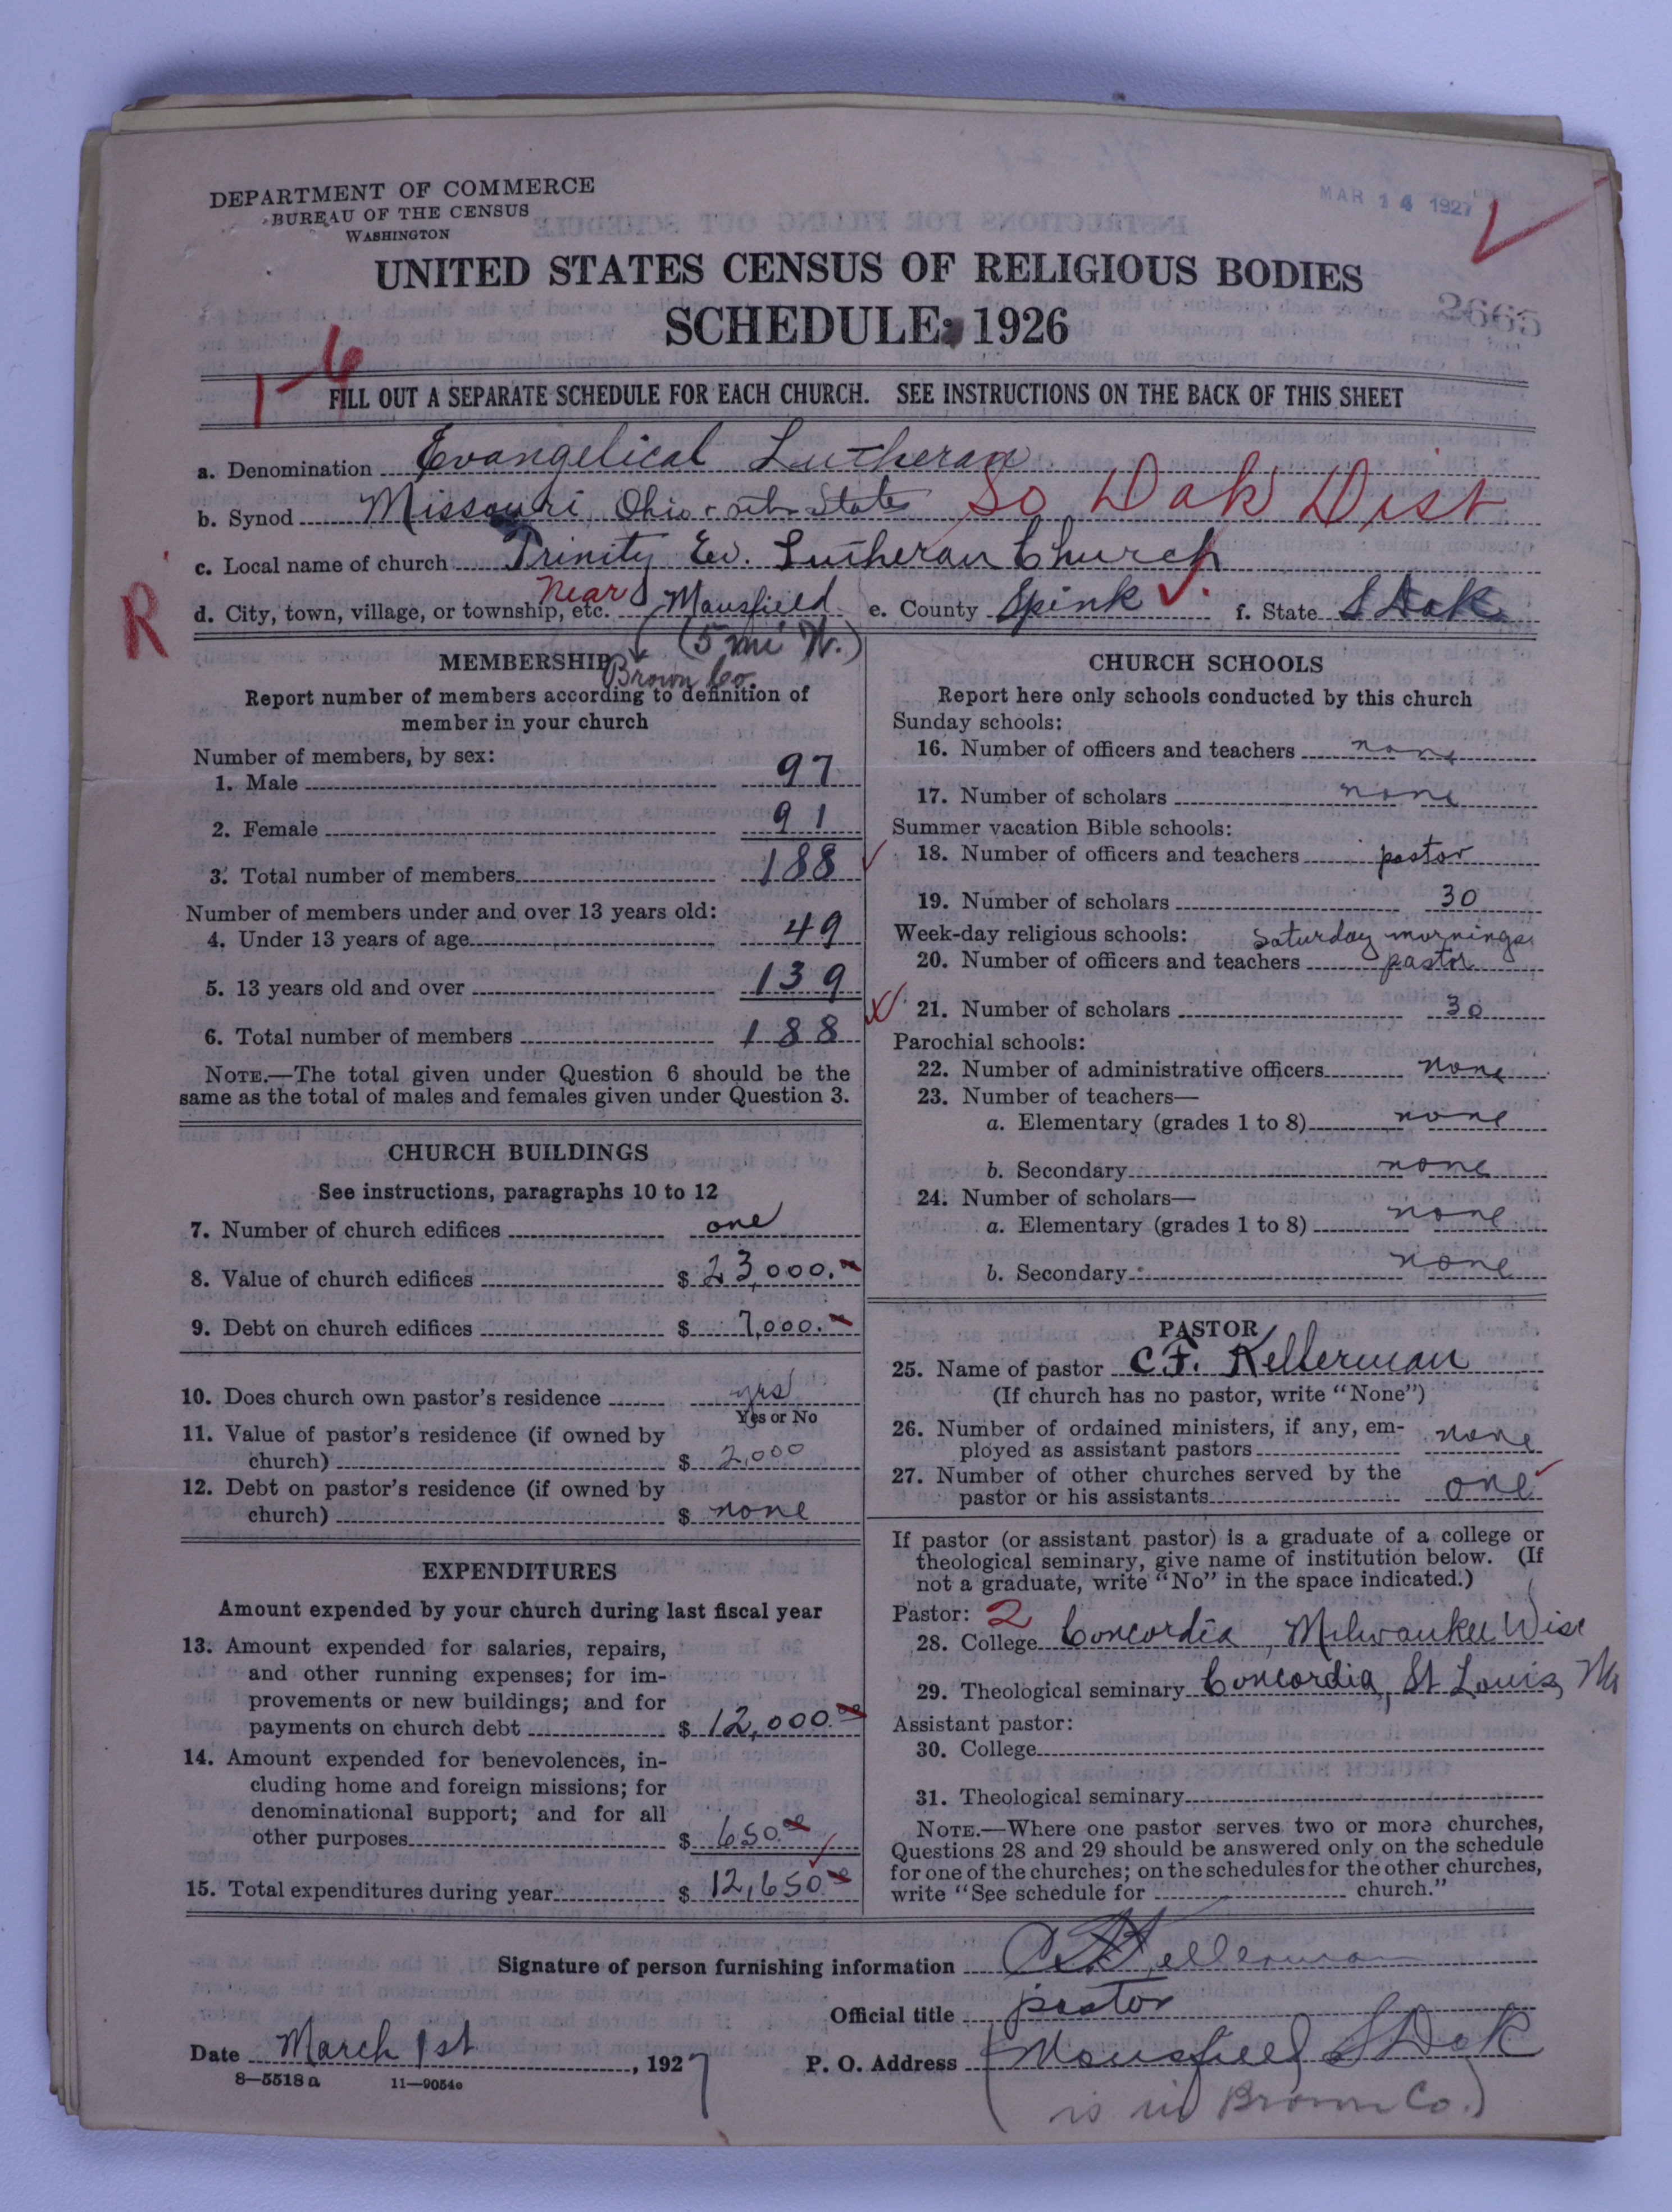 DEPARTMENT OF COMMERCE
BUREAU OF THE CENSUS
WASHINGTON
MAR 14 1927
UNITED STATES CENSUS OF RELIGIOUS BODIES
SCHEDULE: 1926
2665
1-6
FILL OUT A SEPARATE SCHEDULE FOR EACH CHURCH. SEE INSTRUCTIONS ON THE BACK OF THIS SHEET
a. Denomination Evangelical Lutheran
b. Synod Missouri, Ohio & oth States So Dak Dist
c. Local name of church Trinity Ev. Lutheran Church
R
d. City, town, village, or township, etc. Near Mansfield e. County Spink f. State S Dak
(5 mi W.)
Brown Co.
MEMBERSHIP
Report number of members according to definition of
member in your church
Number of members, by sex:
1. Male 97
2. Female 91
3. Total number of members 188
Number of members under and over 13 years old:
4. Under 13 years of age 49
5. 13 years old and over 139
6. Total number of members 188
NOTE.—The total given under Question 6 should be the
same as the total of males and females given under Question 3.
CHURCH BUILDINGS
See instructions, paragraphs 10 to 12
7. Number of church edifices one
8. Value of church edifices $ 23,000.00
9. Debt on church edifices $ 7,000.
10. Does church own pastor's residence yes
Yes or No
11. Value of pastor's residence (if owned by
church) $ 2,000
12. Debt on pastor's residence (if owned by
church) $ none
EXPENDITURES
Amount expended by your church during last fiscal year
13. Amount expended for salaries, repairs,
and other running expenses; for im-
provements or new buildings; and for
payments on church debt $ 12,000.00
14. Amount expended for benevolences, in-
cluding home and foreign missions; for
denominational support; and for all
other purposes $ 650.00
15. Total expenditures during year $ 12,650.00
CHURCH SCHOOLS
Report here only schools conducted by this church
Sunday schools:
16. Number of officers and teachers none
17. Number of scholars none
Summer vacation Bible schools:
18. Number of officers and teachers pastor
19. Number of scholars 30
Week-day religious schools: Saturday mornings
20. Number of officers and teachers pastor
21. Number of scholars 30
Parochial schools:
22. Number of administrative officers none
23. Number of teachers—
a. Elementary (grades 1 to 8) none
b. Secondary none
24. Number of scholars—
a. Elementary (grades 1 to 8) none
b. Secondary none
PASTOR
25. Name of pastor C.F. Kellerman
(If church has no pastor, write "None")
26. Number of ordained ministers, if any, em-
ployed as assistant pastors none
27. Number of other churches served by the
pastor or his assistants one
If pastor (or assistant pastor) is a graduate of a college or
theological seminary, give name of institution below. (If
not a graduate, write "No" in the space indicated.)
Pastor: 2
28. College Concordia, Milwaukee Wisc
29. Theological seminary Concordia, St Louis, Mo
Assistant pastor:
30. College
31. Theological seminary
NOTE.—Where one pastor serves two or more churches,
Questions 28 and 29 should be answered only on the schedule
for one of the churches; on the schedules for the other churches,
write "See schedule for church."
Signature of person furnishing information C.F. Kellerman
Official title pastor
Date March 1st, 1927 P. O. Address (Mansfield S Dak
8—5518 a 11—9054c
is in Brown Co.)